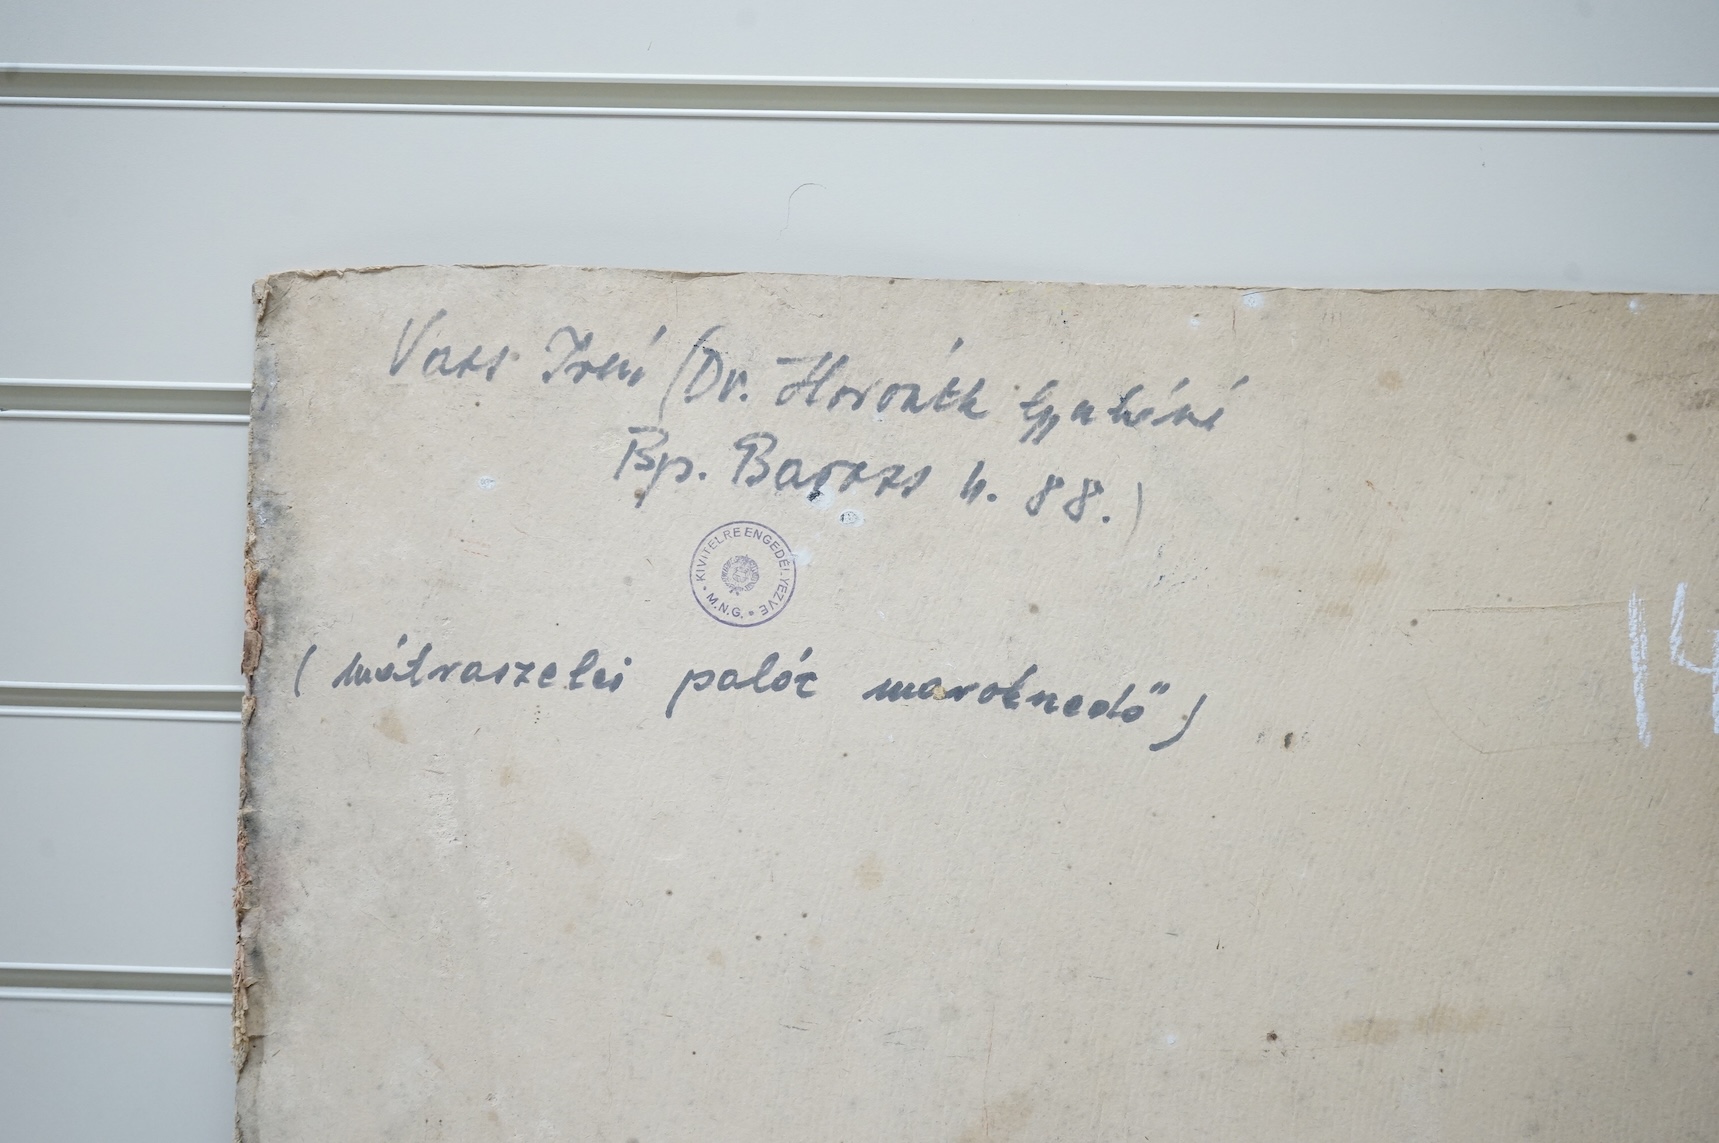 Vass Irén (Dr. Horváth Gyuláné
Bp. Baross u. 88.)
KIVITELRE ENGEDÉLYEZVE
M.N.G.
(mátraszelei palóc marokszedő)
14